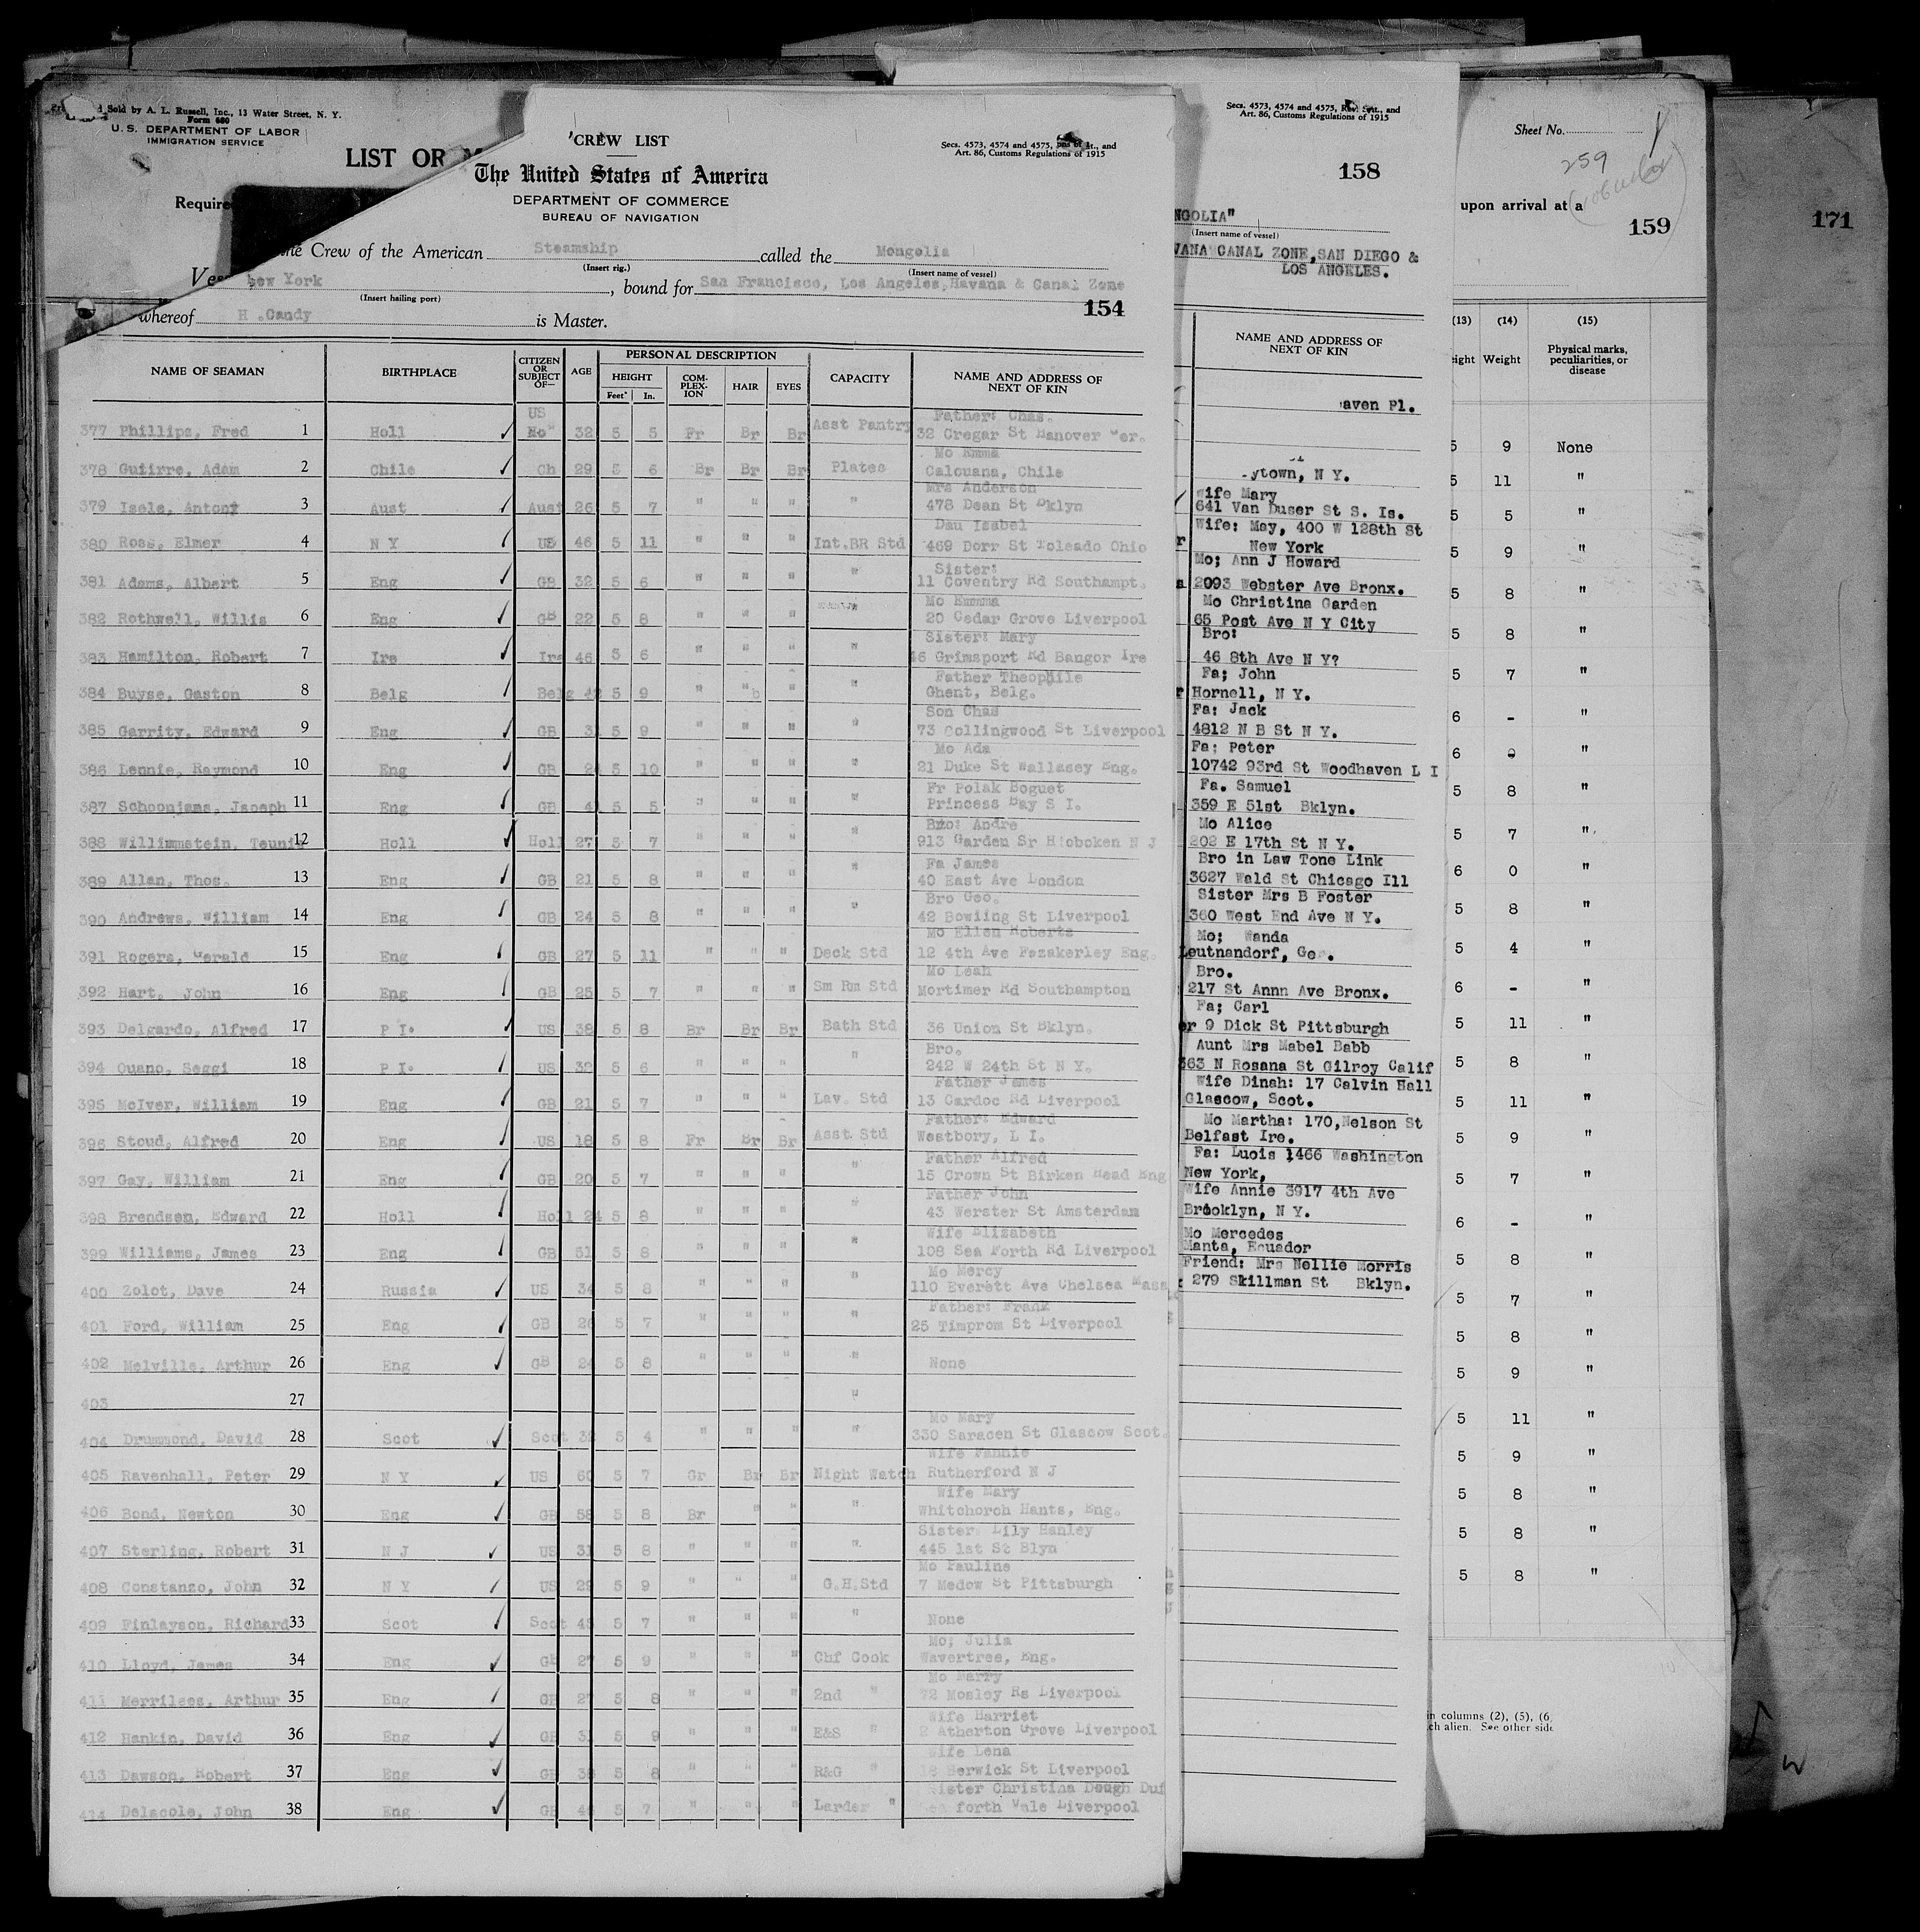 Sold by A. L. Russell, Inc., 13 Water Street, N. Y.
Form 680
U. S. DEPARTMENT OF LABOR
IMMIGRATION SERVICE
LIST OR
Require
Ves
CREW LIST
Secs. 4573, 4574 and 4575, and
Art. 86, Customs Regulations of 1915
The United States of America
DEPARTMENT OF COMMERCE
BUREAU OF NAVIGATION
the Crew of the American Steamship called the Mongolia
(Insert rig.) (Insert name of vessel)
New York, bound for San Francisco, Los Angeles, Havana & Canal Zone
(Insert hailing port)
154
whereof H .Candy is Master.
NAME OF SEAMAN BIRTHPLACE CITIZEN OR SUBJECT OF— AGE PERSONAL DESCRIPTION CAPACITY NAME AND ADDRESS OF NEXT OF KIN
HEIGHT COMPLEXION HAIR EYES
Feet In.
US Father: Chas.
377 Phillips, Fred 1 Holl Ho" 32 5 5 Fr Br Br Asst Pantry 32 Cregar St Hanover Ger.
Mo Emma
378 Guiirre, Adam 2 Chile Ch 29 5 6 Br Br Br Plates Calouana, Chile
Mrs Anderson
379 Isele, Antony 3 Aust Aust 26 5 7 " " " " 478 Dean St Bklyn
Dau Isabel
380 Ross, Elmer 4 N Y US 46 5 11 " " " Int.BR Std 469 Dorr St Toleado Ohio
Sister:
381 Adams, Albert 5 Eng GB 32 5 6 " " " " 11 Coventry Rd Southampt.
Mo Emmma
382 Rothwell, Willis 6 Eng GB 22 5 8 " " " " 20 Cedar Grove Liverpool
Sister: Mary
383 Hamilton, Robert 7 Ire Ire 46 5 6 " " " " 46 Grimsport Rd Bangor Ire
Father Theophile
384 Buyse, Gaston 8 Belg Belg 42 5 9 " " " " Ghent, Belg.
Son Chas
385 Garrity, Edward 9 Eng GB 31 5 9 " " " " 73 Collingwood St Liverpool
Mo Ada
386 Lennie, Raymond 10 Eng GB 24 5 10 " " " " 21 Duke St Wallasey Eng.
Fr Polak Boguet
387 Schoonjams, Jsoeph 11 Eng GB 41 5 5 " " " " Princess Bay S I.
Bro: Andre
388 Willimmstein, Teunis 12 Holl Holl 27 5 7 " " " " 913 Garden Sr Hioboken N J
Fa James
389 Allan, Thos. 13 Eng GB 21 5 8 " " " " 40 East Ave London
Bro Geo.
390 Andrews, William 14 Eng GB 24 5 8 " " " " 42 Bowiing St Liverpool
Mo Ellen Roberts
391 Rogers, Gerald 15 Eng GB 27 5 11 " " " Deck Std 12 4th Ave Fazakerley Eng.
Mo Leah
392 Hart, John 16 Eng GB 25 5 7 " " " Sm Rm Std Mortimer Rd Southampton
393 Delgardo, Alfred 17 P I. US 38 5 8 Br Br Br Bath Std 36 Union St Bklyn.
Bro.
394 Ouano, Seggi 18 P I. US 32 5 6 " " " " 242 W 24th St N Y.
Father James
395 McIver, William 19 Eng GB 21 5 7 " " " Lav. Std 13 Cardoc Rd Liverpool
Father: Edward
396 Stoud, Alfred 20 Eng US 18 5 8 Fr Br Br Asst. Std Westbory, L I.
Father Alfred
397 Gay, William 21 Eng GB 20 5 7 " " " " 15 Crown St Birken Head Eng
Father John
398 Brendsen, Edward 22 Holl Holl 24 5 8 " " " " 43 Werster St Amsterdam
Wife Elizabeth
399 Williams, James 23 Eng GB 51 5 8 " " " " 108 Sea Forth Rd Liverpool
Mo Mercy
400 Zolot, Dave 24 Russia US 34 5 8 " " " " 110 Everett Ave Chelsea Mass
Father: Frank
401 Ford, William 25 Eng GB 26 5 7 " " " " 25 Timprom St Liverpool
402 Melville, Arthur 26 Eng GB 24 5 8 " " " " None
403 27 "
Mo Mary
404 Drummond, David 28 Scot Scot 32 5 4 " " " " 330 Saracen St Glascow Scot.
Wife Fannie
405 Ravenhall, Peter 29 N Y US 60 5 7 Gr Br Br Night Watch Rutherford N J
Wife Mary
406 Bond, Newton 30 Eng GB 58 5 8 Br " " " Whitchorch Hants, Eng.
Sister Lily Hanley
407 Sterling, Robert 31 N J US 31 5 8 " " " " 445 1st St Blyn
Mo Pauline
408 Constanzo, John 32 N Y US 29 5 9 " " " G.H.Std 7 Medow St Pittsburgh
409 Finlayson, Richard 33 Scot Scot 45 5 7 " " " " None
Mo; Julia
410 Lloyd, James 34 Eng GB 27 5 9 " " " Chf Cook Wavertree, Eng.
Mo Harry
411 Merrilees, Arthur 35 Eng GB 27 5 8 " " " 2nd " 72 Mosley Rs Liverpool
Wife Harriet
412 Hankin, David 36 Eng GB 31 5 9 " " " E&S " 2 Atherton Grove Liverpool
Wife Lena
413 Dawson, Robert 37 Eng GB 38 5 8 " " " R&G " 18 Berwick St Liverpool
Sister Christina Dough Duf
414 Delacole, John 38 Eng GB 46 5 7 " " " Larder " forth Vale Liverpool
Secs. 4573, 4574 and 4575, Rev. Stat., and
Art. 86, Customs Regulations of 1915
158
NGOLIA"
(Insert name of vessel)
VANA CANAL ZONE, SAN DIEGO &
LOS ANGELES.
NAME AND ADDRESS OF
NEXT OF KIN
aven Pl.
ytown, N Y.
Wife Mary
641 Van Duser St S. Is.
Wife: May, 400 W 128th St
New York
Mo; Ann J Howard
2093 Webster Ave Bronx.
Mo Christina Garden
65 Post Ave N Y City
Bro:
46 8th Ave N Y?
Fa; John
Hornell, N Y.
Fa; Jack
4812 N B St N Y.
Fa; Peter
10742 93rd St Woodhaven L I
Fa. Samuel
359 E 51st Bklyn.
Mo Alice
202 E 17th St N Y.
Bro in Law Tone Link
3627 Wald St Chicago Ill
Sister Mrs B Foster
360 West End Ave N Y.
Mo; Wanda
Leutnandorf, Ge .
Bro.
217 St Annn Ave Bronx.
Fa; Carl
er 9 Dick St Pittsburgh
Aunt Mrs Mabel Babb
363 N Rosana St Gilroy Calif
Wife Dinah: 17 Calvin Hall
Glascow, Scot.
Mo Martha: 170,Nelson St
Belfast Ire.
Fa: Luois 1466 Washington
New York,
Wife Annie 3917 4th Ave
Brooklyn, N Y.
Mo Mercedes
Manta, Ecuador
Friend: Mrs Nellie Morris
279 Skillman St Bklyn.
Sheet No.
259
upon arrival at a
159
(13) (14) (15)
eight Weight Physical marks, peculiarities, or disease
5 9 None
5 11 "
5 5 "
5 9 "
5 8 "
5 8 "
5 7 "
6 - "
6 0 "
5 8 "
5 7 "
6 0 "
5 8 "
5 4 "
6 - "
5 11 "
5 8 "
5 11 "
5 9 "
5 7 "
6 - "
5 8 "
5 7 "
5 8 "
5 9 "
5 11 "
5 9 "
5 8 "
5 8 "
5 8 "
in columns (2), (5), (6
ch alien. See other side
171
W